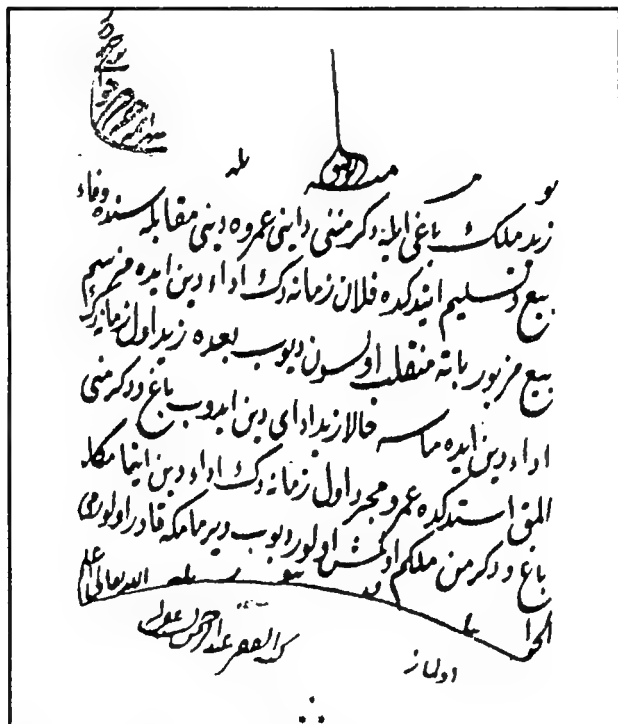 بو مسئله
زيد ملك باغى ايله دكرمننى داينى عمروه دينى مقابله سنده وفاء
بيع و تسليم ايتدكده فلان زمانه دك اداء دين ايده مزسم
بيع مزبور باته منقلب اولسون ديوب بعده زيد اول زمانه دك
اداء دين ايده ماسه حالا زيد اداى دين ايدوب باغ و دكرمنى
المق استدكده عمرو مجرد اول زمانه دك اداء دين ايتمامكله
باغ و دكرمن ملكم اولمش اولور ديوب ويرمامكه قادر اولورمى
الجواب الله تعالى اعلم
اولماز
كتبه الفقير